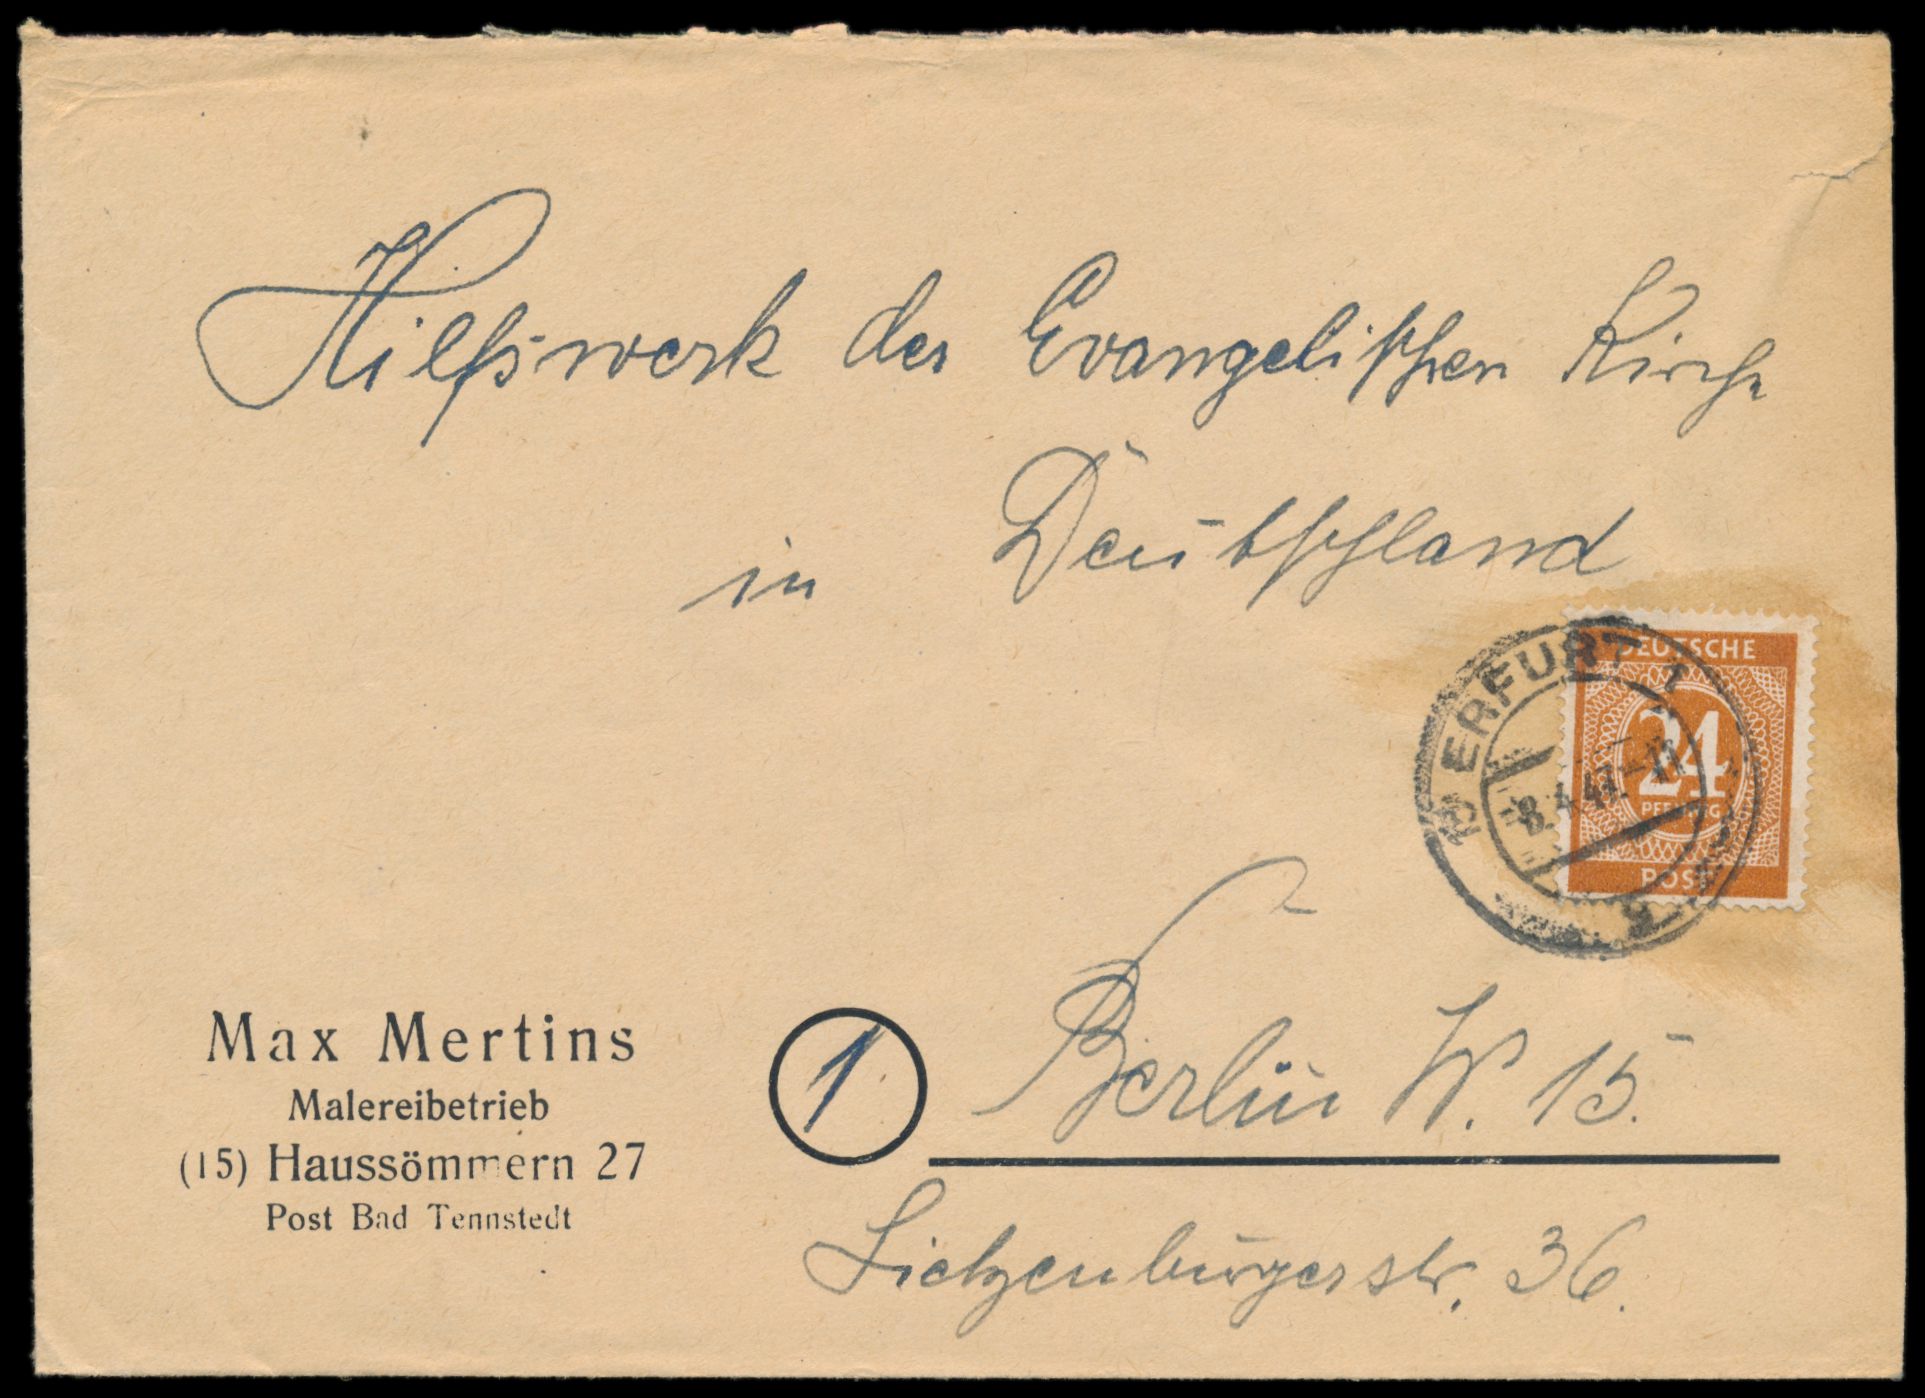 Hilfswerk der Evangelischen Kirche
in Deutschland
DEUTSCHE
24
PFENNIG
POST
ERFURT 1
8.4.47.-11
Max Mertins
Malereibetrieb
(15) Haussömmern 27
Post Bad Tennstedt
1
Berlin W. 15.
Lietzenburgerstr. 36.